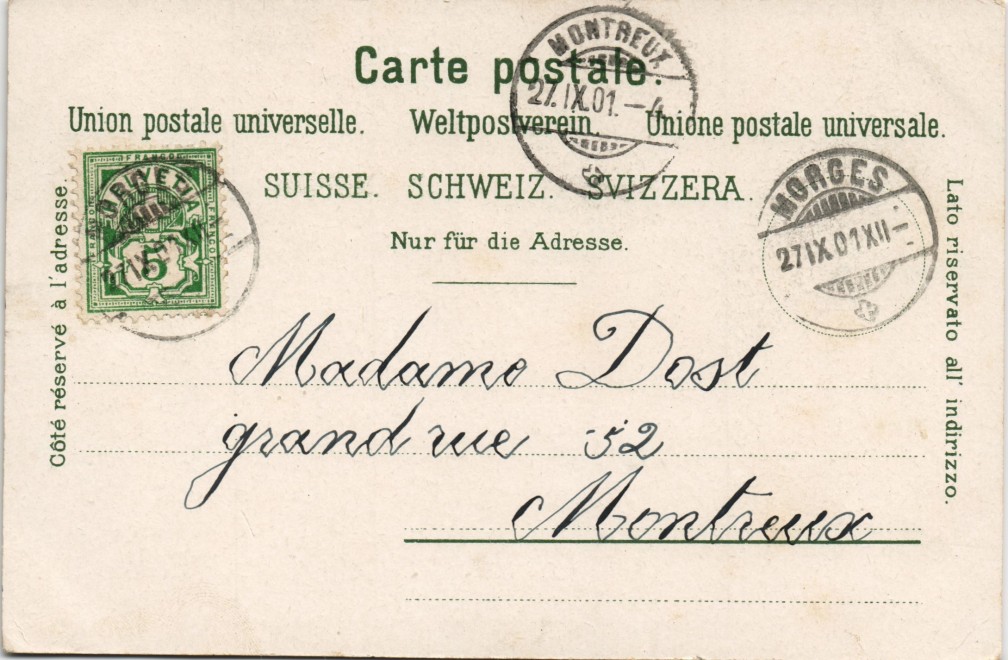 Carte postale.
Union postale universelle. Weltpostverein. Unione postale universale.
SUISSE. SCHWEIZ. SVIZZERA.
Nur für die Adresse.
Côté réservé à l'adresse.
Lato riservato all' indirizzo.
MONTREUX
27.IX.01.–4
MORGES
27.IX.01.XII–
FRANCO
FRANCO
FRANCO
5
Madame Dost
grand rue 52
Montreux